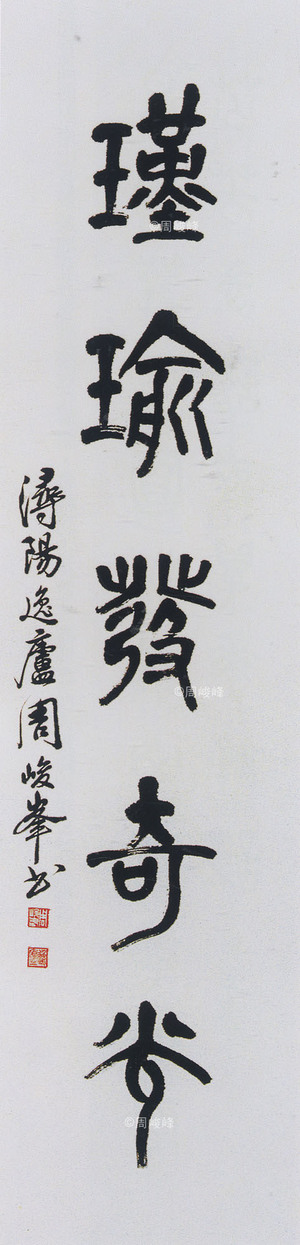 瑾瑜發奇光
潯陽逸廬周峻峯书
©周峻峰
©周峻峰
©周峻峰